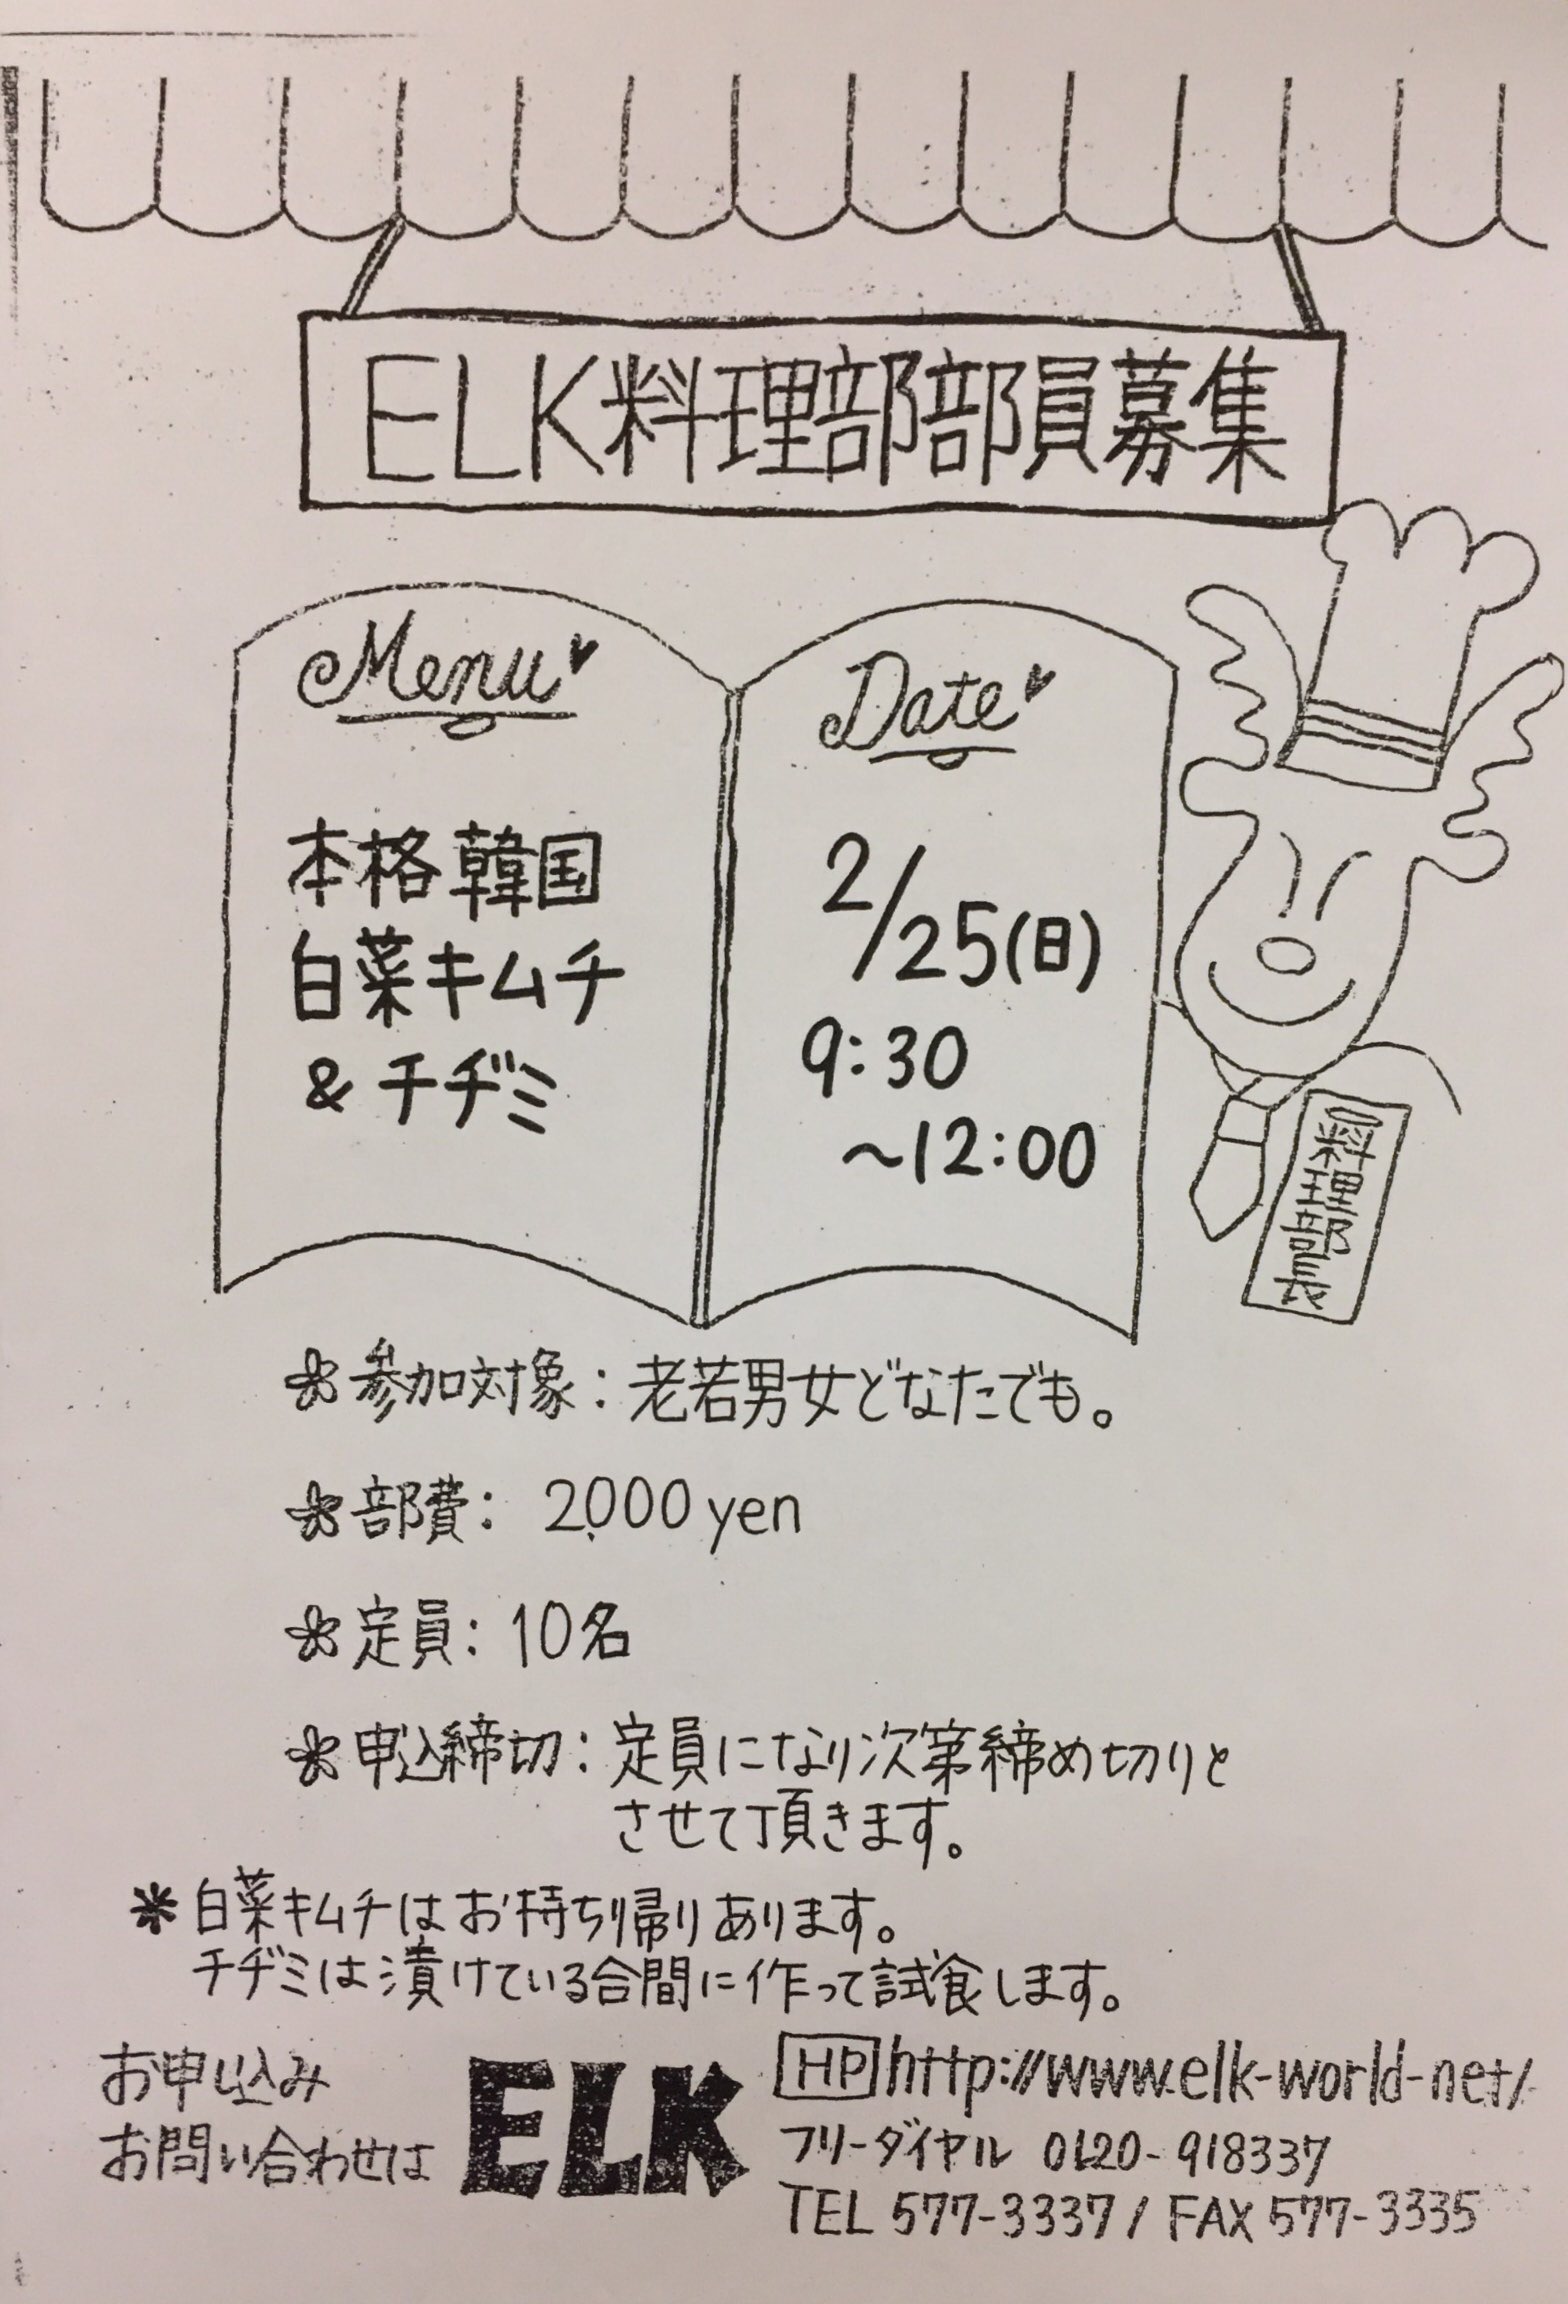 ELK料理部部員募集
Menu
本格韓国
白菜キムチ
&チヂミ
Date
2/25(日)
9:30
~12:00
料理部長
参加対象：老若男女どなたでも。
部費：2,000yen
定員：10名
申込締切：定員になり次第締め切りと
させて頂きます。
＊白菜キムチはお持ち帰りあります。
チヂミは漬けている合間に作って試食します。
お申し込み
お問い合わせは
ELK
HP http://www.elk-world-net/
フリーダイヤル 0120-918337
TEL 577-3337 / FAX 577-3335